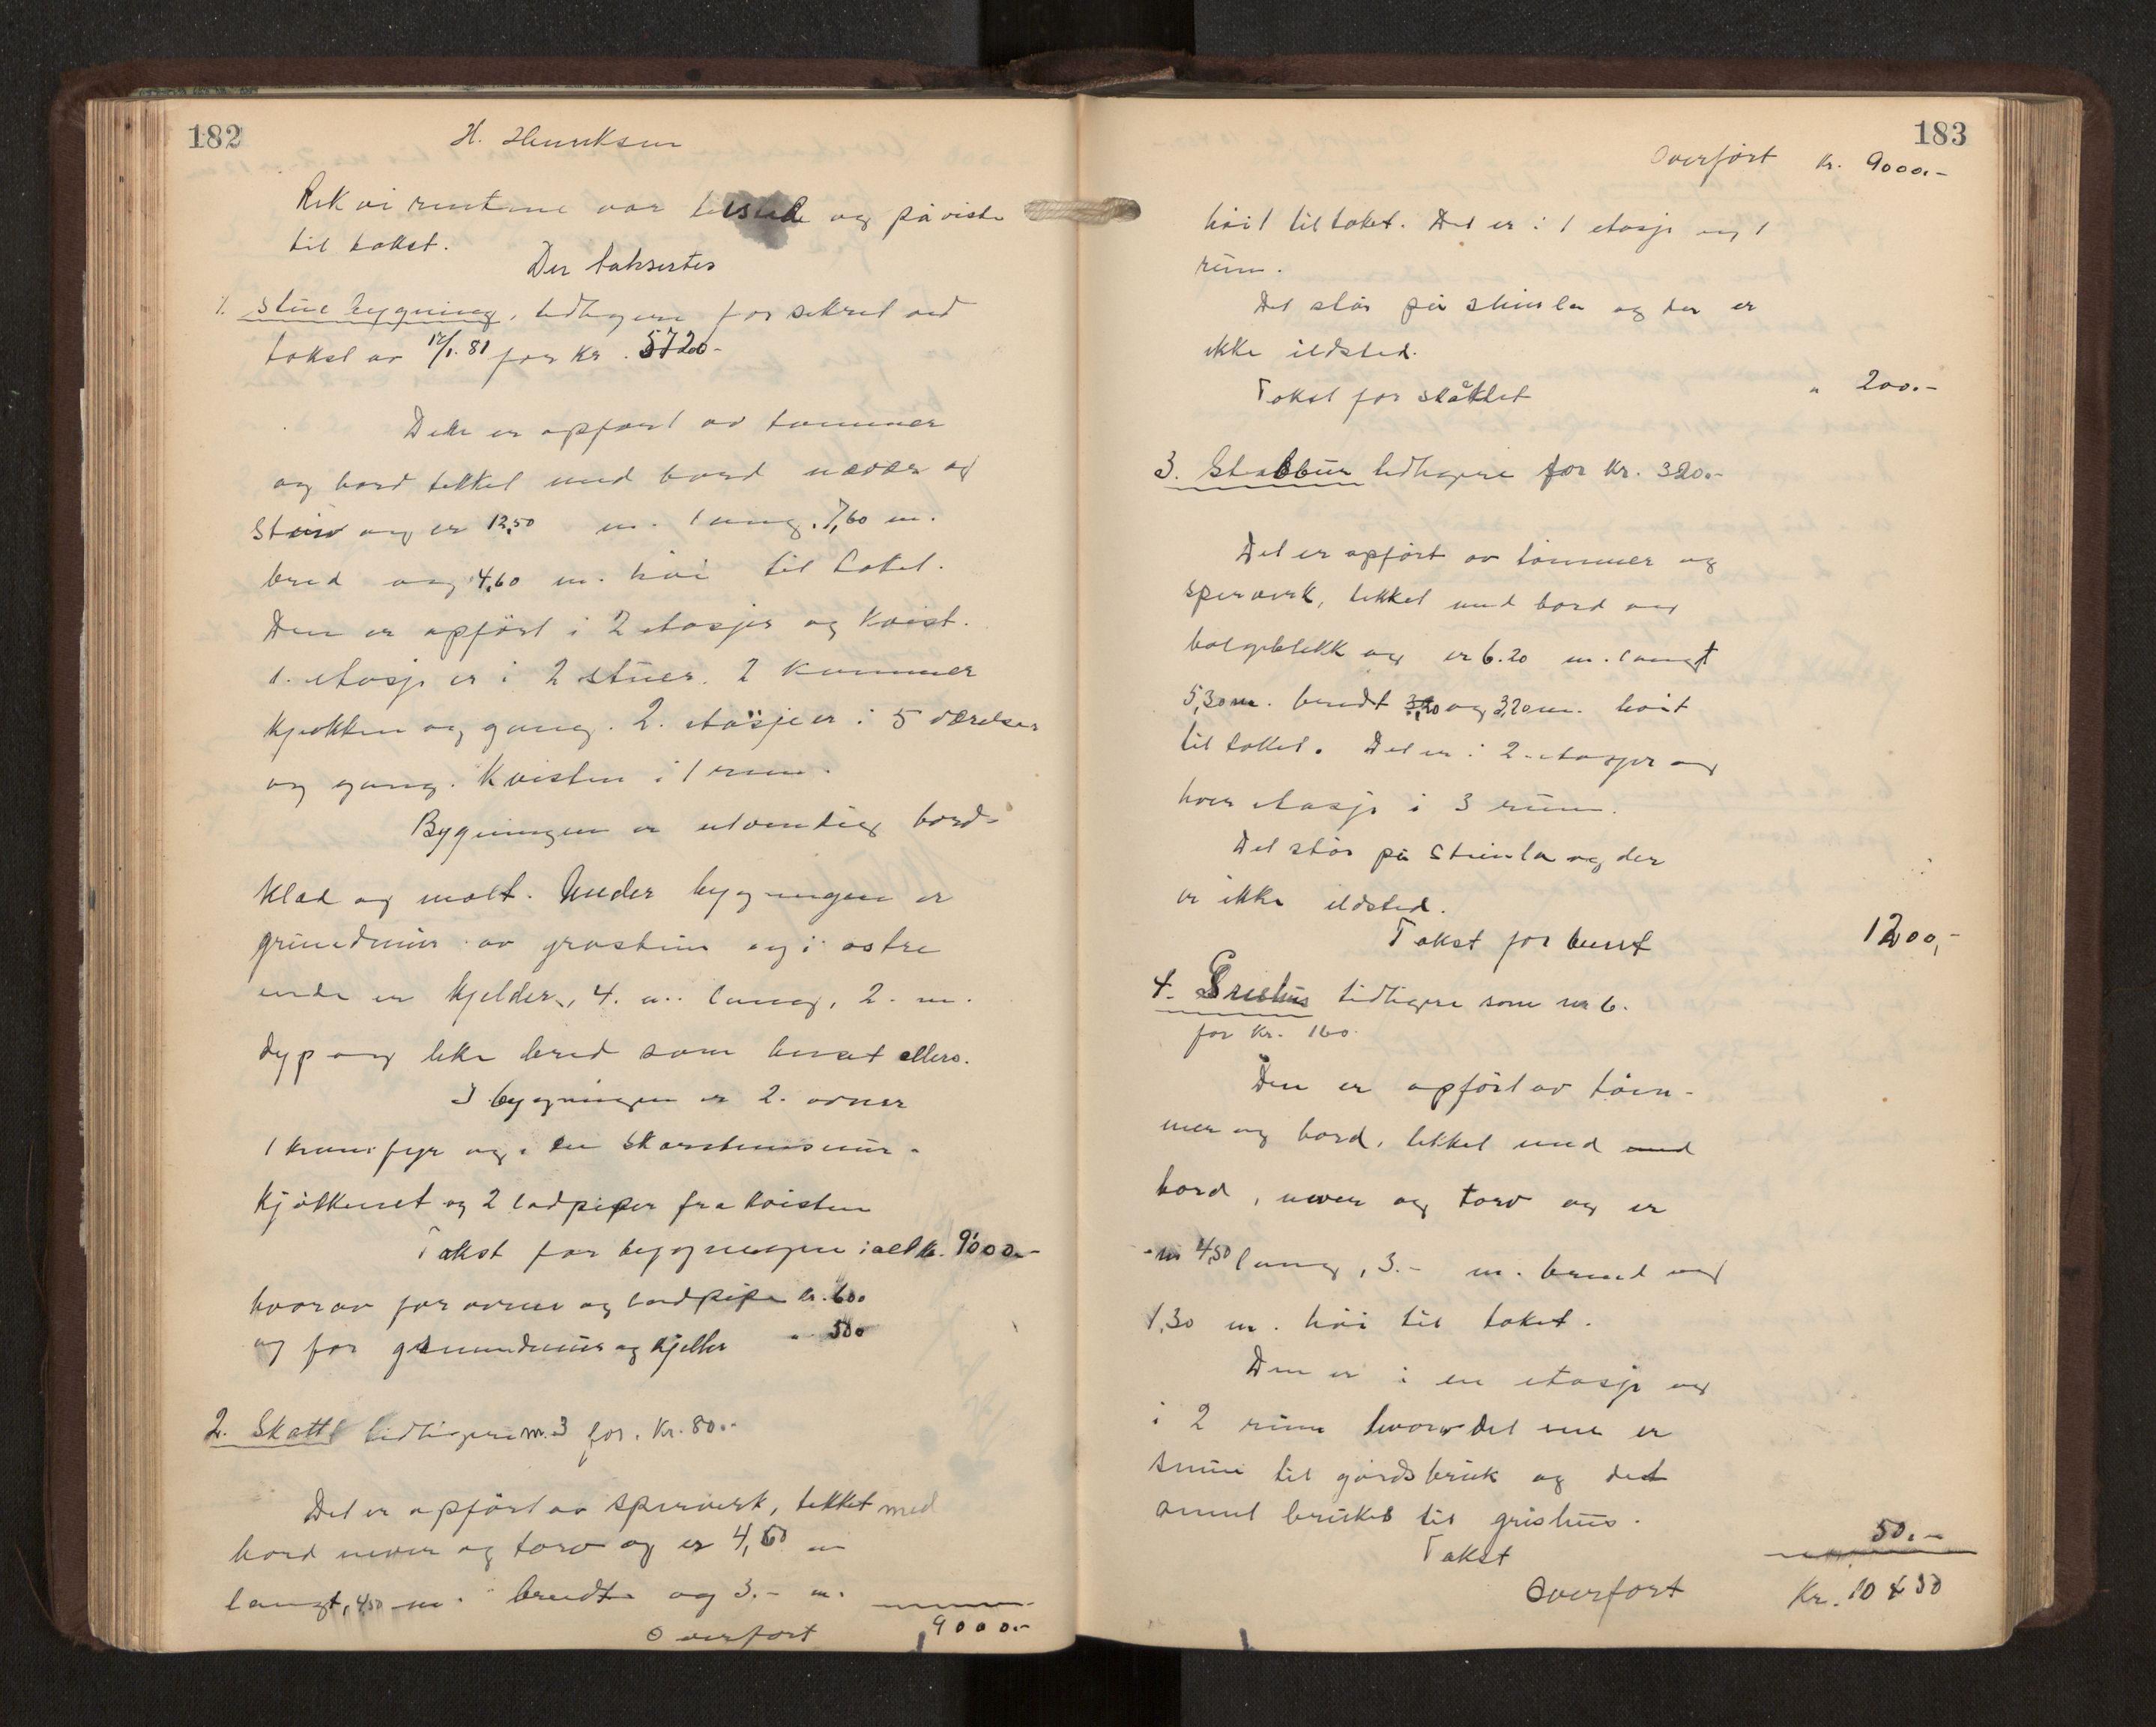 182
H. Henriksen
Rekvirentene var tilstede og påviste
til takst.
Der takseredes
1. Stuebygning, tidligere forsikret ved
takst av 12/1. 81 for Kr. 5720-
Den er opført av tømmer
og bord tekket med bord næver og
og er 12,50 m. lang, 7,60 m.
bred og 4,60 m. høi til taket.
Den er opført i 2 etasjer og Kvist.
1. etasje er i 2 stuer, 2 kammer
kjøkken og gang. 2. etasje er i 5 værelser
og gang. Kvisten i 1 rum.
Bygningen er utvendig bord-
klæd og malt. Under bygningen er
grundmur av gråsten og i østre
ende er kjelder, 4. m. lang, 2. m.
dyp og like bred som huset ellers.
I bygningen er 2. ovner
1 komfyr og i en skorstensmur.
Kjøkkenet og 2 lodpiper fra kvisten
Takst for bygningen ialt kr. 9000.-
hvorav for ovner og lodpipe kr. 600
og for grundmur og kjeller " 500
2. Skått tidligere nr. 3 for Kr. 80.-
Det er opført av sperverk, tekket med
bord never og torv og er 4,60 m
langt, 4,50 m. bredt og 3.- m.
Overført 9000.-
183
Overført Kr. 9000.-
høit til taket. Det er i 1 etasje og 1
rum.
Det står på stenler og der er
ikke ildsted.
Takst for skåttet " 200.-
3. Stabbur tidligere for Kr. 320.-
Det er opført av tømmer og
sperverk, tekket med bord og
bølgeblekk og er 6.20 m. langt
5,30 m. bredt og 3,20 m. høit
til taket. Det er i 2 etasjer og
hver etasje i 3 rum.
Det står på stenler og der
er ikke ildsted.
Takst for buret 1200,-
4. Grishus tidligere som nr 6.
for Kr. 160.
Den er opført av tøm-
mer og bord, tekket med med
bord, never og torv og er
m 4,50 lang, 3.- m. bred og
1,30 m. høi til taket.
Den er i en etasje og
i 2 rum hvorav det ene er
smie til gårdsbruk og det
annet brukes til grishus.
Takst 50.-
Overført Kr. 10450